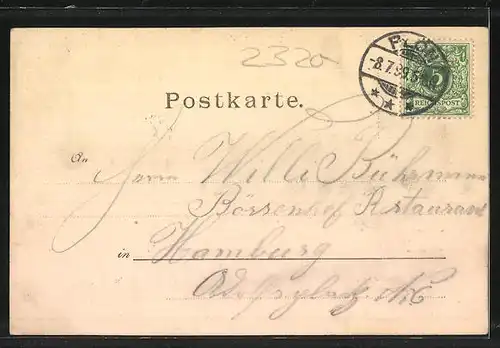 2320
-8.7.99.
5
REICHSPOST
Postkarte.
An
Herrn Willi Bührmann
Börsenhof Restaurant
in Hamburg
Adolfsplatz